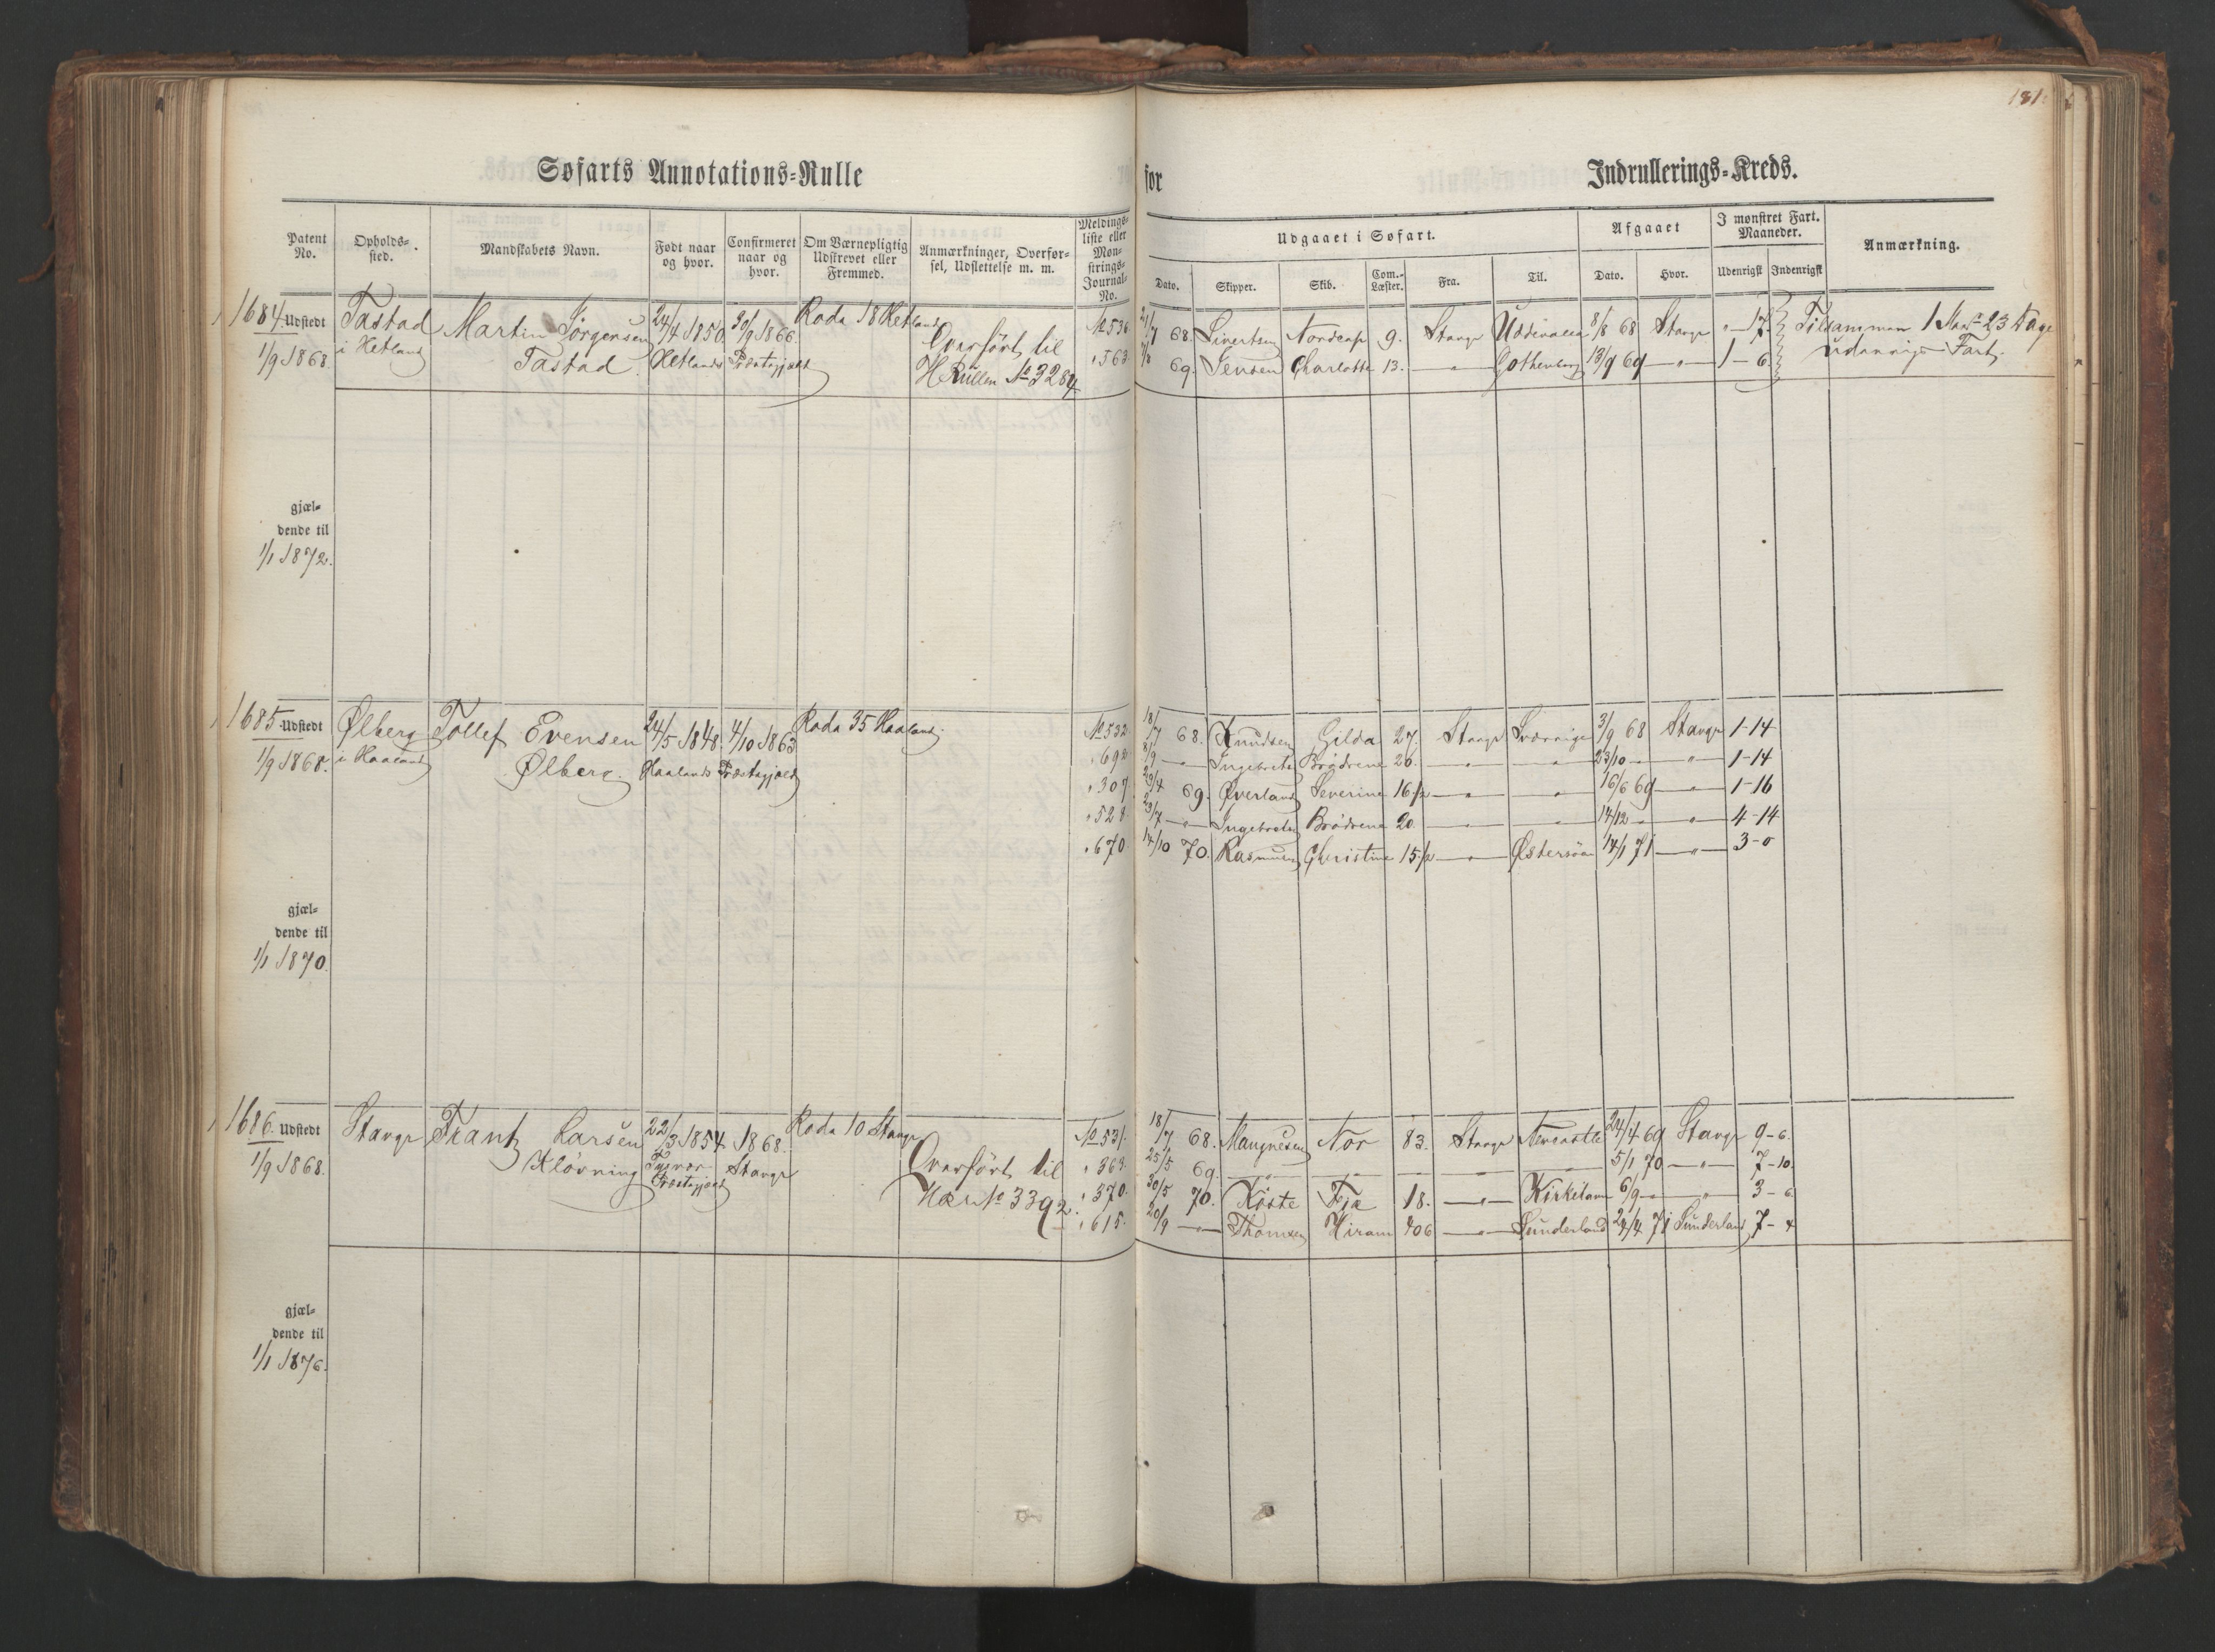 181
Søfarts Annotations-Rulle for Indrullerings-Kreds.
Patent No. Opholds-sted. Mandskabets Navn. Født naar og hvor. Confirmeret naar og hvor. Om Værnepligtig Udskrevet eller Fremmed. Anmærkninger, Overførsel, Udslettelse m. m. Meldingsliste eller Mønstrings-Journal-No.
Udgaaet i Søfart. Afgaaet I mønstret Fart. Maaneder. Anmærkning.
Dato. Skipper. Skib. Com.-Læster. Fra. Til. Dato. Hvor. Udenrigsk Indenrigsk
1684 Udstedt Tastad Martin Jörgensen 24/4 1850 30/9 1866. Roda 18 Hetland № 536 21/7 68. Sivertsen Nordcap 9. Stavgr Uddevalla 8/8 68 Stavgr " 17. Tilsammen 1 Maan 23 Dage
1/9 1868 i Hetland Tastad. Hetlands Præstegjæld Overført til " 563 7/8 69. Jensen Charlotte 13. — " — Gothenborg 13/9 69 — " — 1 - 6. udenrigs Fart.
HRullen № 3284
gjæl-
dende til
1/1 1872.
1685 Udstedt Ølberg Tollef Evensen 24/5 1848. 4/10 1863 Roda 35 Haaland. № 532 18/7 68. Knudsen Gilda 27. Stavgr Sverrige 3/9 68 Stavgr 1-14
1/9 1868. i Haaland Ølberg. Haalands Præstegjæld " 692 8/9 — " — Ingebretsen Brødrene 26. — " — — " — 23/10 — " — 1-14
" 307 23/4 69. Øverland Severine 16 1/2 — " — — " — 16/6 69 — " — 1-16
" 528 23/7 — " — Ingebretsen Brödrene 20. — " — — " — 14/12 — " — 4-14
" 670 14/10 70. Rasmusen Christine 15 1/2 — " — Østersöen 14/1 71 — " — 3-0
gjæl-
dende til
1/1 1870.
1686. Udstedt Stavgr Frantz Larsen 22/3 1854 1868. Roda 10 Stavgr № 531. 18/7 68. Mangnesen Nor 83. Stavgr Newcastle 24/4 69 Stavgr 9-6.
1/9 1868. Klövning Tysvær Præstegjæld Stavgr Overført til " 363. 25/5 69. — " — — — — 5/1 70 — " — 7-10.
H № 3392. " 370. 30/5 70. Köste Fja 18. — " — Kirkelam 6/9 — " — 3-6
" 615. 20/9 — " — Thomsen Hiram 406 — " — Sunderland 24/4 71 Sunderland 7-4
gjæl-
dende til
1/1 1876.